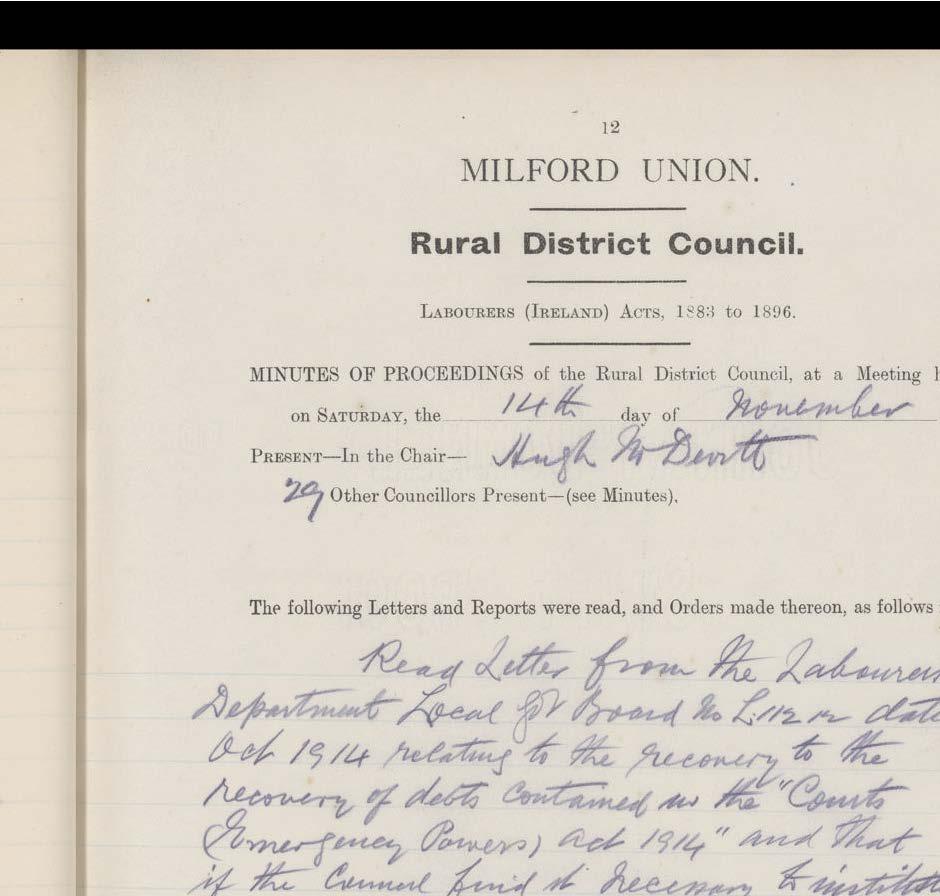 12
MILFORD UNION.
Rural District Council.
LABOURERS (IRELAND) ACTS, 1883 to 1896.
MINUTES OF PROCEEDINGS of the Rural District Council, at a Meeting h
on SATURDAY, the 14th day of November
PRESENT—In the Chair— Hugh McDevitt
29 Other Councillors Present—(see Minutes).
The following Letters and Reports were read, and Orders made thereon, as follows
Read Letter from the Labourers
Department Local Gvt Board No date
Oct 1914 relating to the recovery to the
recovery of debts contained in the "Courts
(Emergency Powers) Act 1914" and that
if the Council find it necessary to institute